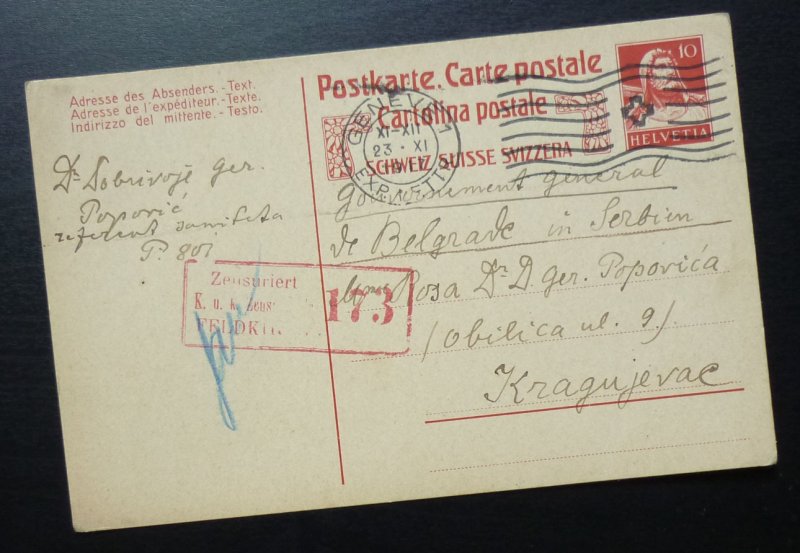 Postkarte. Carte postale
Cartolina postale
SCHWEIZ SUISSE SVIZZERA
10
HELVETIA
GENÈVE 1
XI-XII
23 · XI
EXP. LETTR
Adresse des Absenders. - Text.
Adresse de l'expéditeur. - Texte.
Indirizzo del mittente. - Testo.
Dr Dobrivoje Ger.
Popović
referent saniteta
P. 801
Zensuriert
K. u. k. Zens
FELDKI
173
Gouvernement general
de Belgrade in Serbien
Rosa Dr D. ger. Popovića
(Obilica ul. 9)
Kragujevac